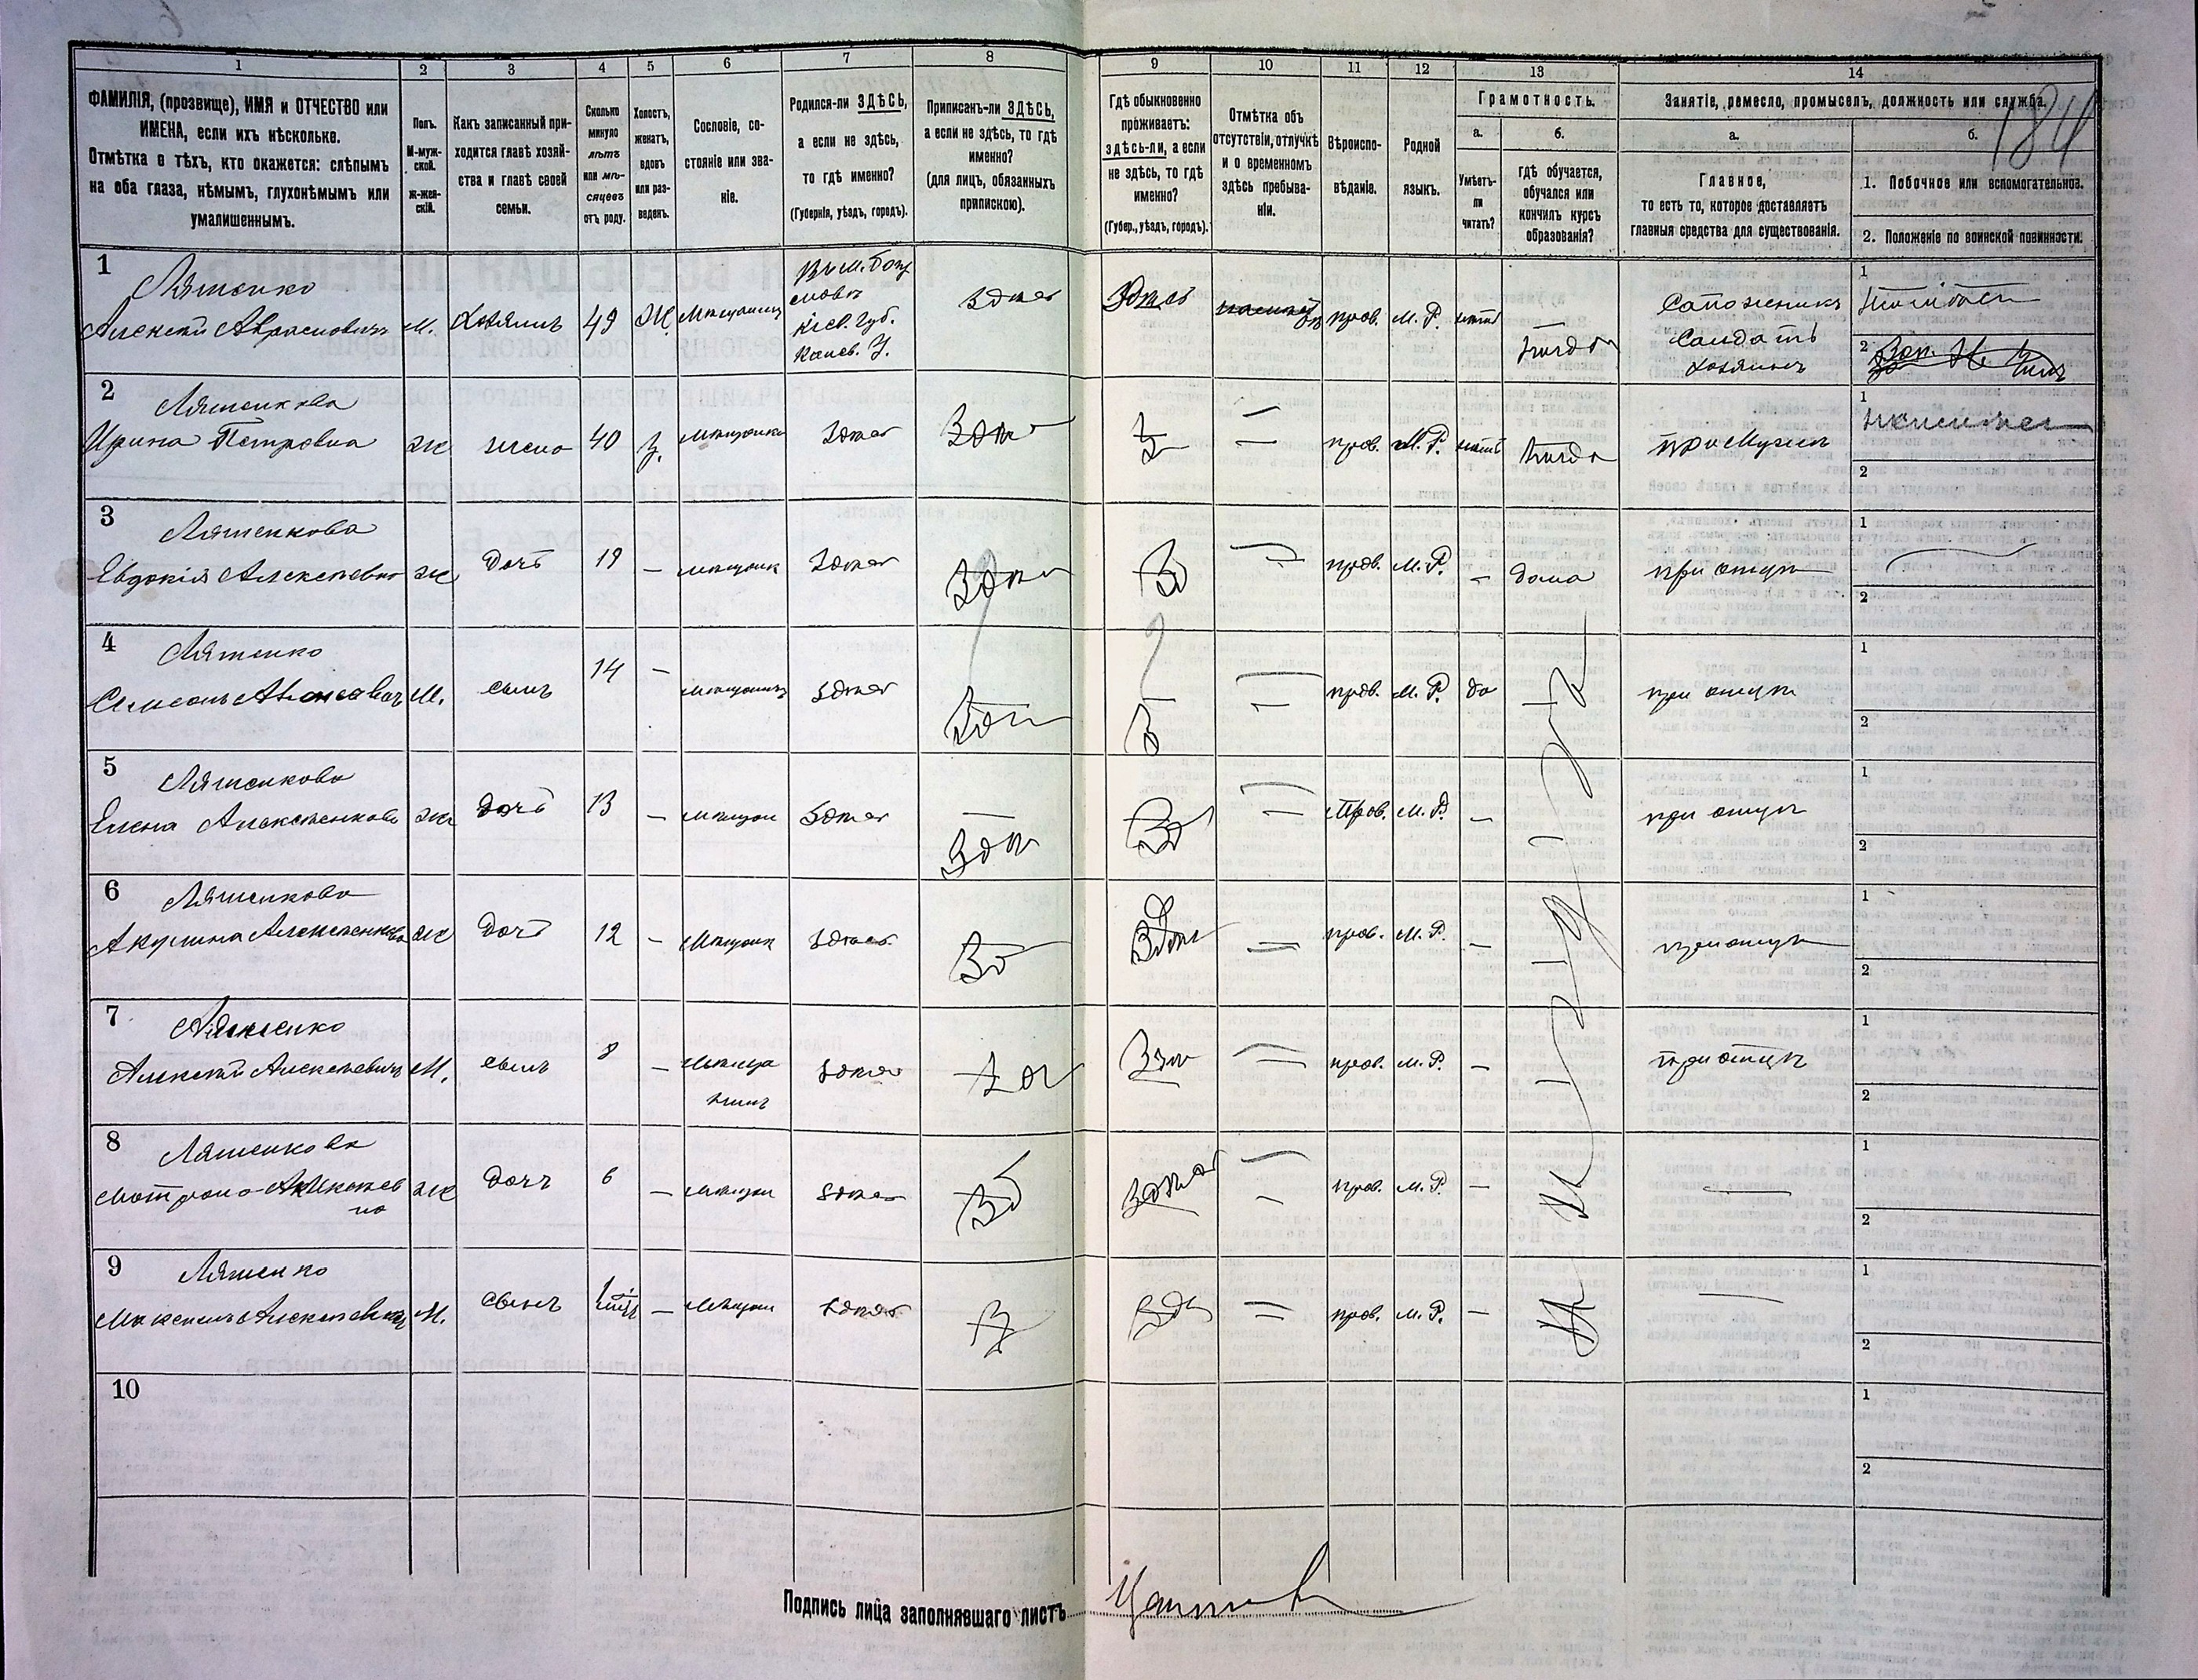 1 2 3 4 5 6 7 8 9 10 11 12 13 14
ФАМИЛІЯ, (прозвище), ИМЯ и ОТЧЕСТВО или
ИМЕНА, если ихъ нѣсколько.
Отмѣтка о тѣхъ, кто окажется: слѣпымъ
на оба глаза, нѣмымъ, глухонѣмымъ или
умалишеннымъ.
Полъ.
М-муж-
ской.
ж-жен-
скій.
Какъ записанный при-
ходится главѣ хозяй-
ства и главѣ своей
семьи.
Сколько
минуло
лѣтъ
или мѣ-
сяцевъ
отъ роду.
Холостъ,
женатъ,
вдовъ
или раз-
веденъ.
Сословіе, со-
стояніе или зва-
ніе.
Родился-ли ЗДѢСЬ,
а если не здѣсь,
то гдѣ именно?
(Губернія, уѣздъ, городъ).
Приписанъ-ли ЗДѢСЬ,
а если не здѣсь, то гдѣ
именно?
(для лицъ, обязанныхъ
припискою).
Гдѣ обыкновенно
проживаетъ:
здѣсь-ли, а если
не здѣсь, то гдѣ
именно?
(Губер., уѣздъ, городъ).
Отмѣтка объ
отсутствіи, отлучкѣ
и о временномъ
здѣсь пребыва-
ніи.
Вѣроиспо-
вѣданіе.
Родной
языкъ.
Грамотность.
а.
Умѣетъ-
ли
читать?
б.
гдѣ обучается,
обучался или
кончилъ курсъ
образованія?
Занятіе, ремесло, промыселъ, должность или служба.
184
а.
Главное,
то есть то, которое доставляетъ
главныя средства для существованія.
б.
1. Побочное или вспомогательное.
2. Положеніе по воинской повинности.
1
Ляшенко
Алексѣй Аврамовичъ М. Хозяинъ 49 Ж. Мѣщанинъ
Кіев. Губ.
Канев. У.
Здѣсь Здѣсь пров. М. Р. нѣтъ
Сапожникъ
Солдатъ
хозяинъ
1
2
2
Ляшенкова
Ирина Петровна ж жена 40 З. мѣщанка здѣсь Здѣ З пров. М. Р. нѣтъ при Мужѣ
1
2
3
Ляшенкова
Евдокія Алексѣевна ж Дочь 19 – мѣщанк здѣсь Здѣ Зд пров. М. Р. – дома при отцѣ
1
2
4
Ляшенко
М. сынъ 14 – мѣщанинъ здѣсь пров. М. Р. да при отцѣ
1
2
5
Ляшенкова
Елена Алексѣенкова ж дочь 13 – мѣщан здѣсь Здѣ Зд Пров. М. Р. – при отцѣ
1
2
6
Ляшенкова
Акулина Алексѣенкова ж Дочь 12 – Мѣщанк здѣсь Зд Здѣ пров. М. Р. – при отцѣ
1
2
7
Ляшенко
Алексѣй Алексѣевичъ М. сынъ 8 – Мѣща
нинъ
здѣсь пров. М. Р. – при отцѣ
1
2
8
Ляшенкова
Матрона Алексѣев
на
ж Дочь 6 – мѣщан здѣсь Зд здѣсь пров. М. Р. –
1
2
9
Ляшенко
Максимъ Алексѣевичъ М. сынъ – Мѣщан здѣсь Здѣ пров. М. Р. –
1
2
10
1
2
Подпись лица заполнявшаго листъ